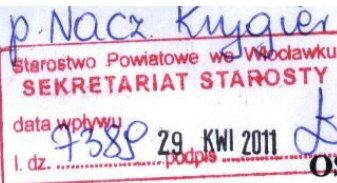 p. Nacz. Krygier
Starostwo Powiatowe we Włocławku
SEKRETARIAT STAROSTY
data wpływu
l. dz. 7389 29 KWI 2011 podpis
OŚ